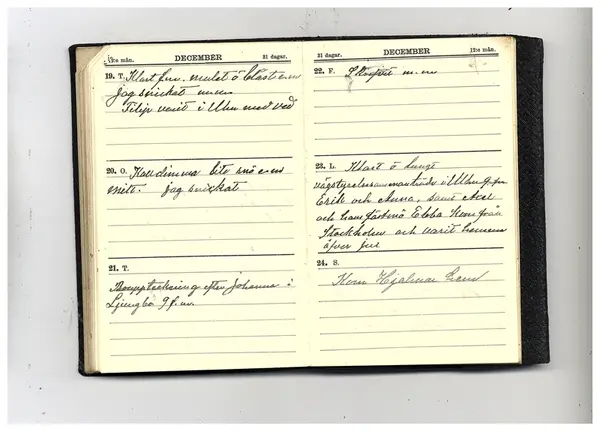 12:e mån. DECEMBER 31 dagar.
19. T. Klart f.m. mulet o blåst e.m
jag snickat m.m
Filip varit i Ulm med ved
20. O. Kall dimma lite snö e.m
jag snickat
21. T.
Bouppteckning efter Johanna i
Ljungbo 9 f.m.
31 dagar. DECEMBER 12:e mån.
22. F. m.m
23. L. Klart o lungt
i Ulm
Erik och Anna, samt Axel
och hans fästmö Ebba kom från
Stockholm och varit hemma
öfver jul
24. S.
Kom Hjalmar hem